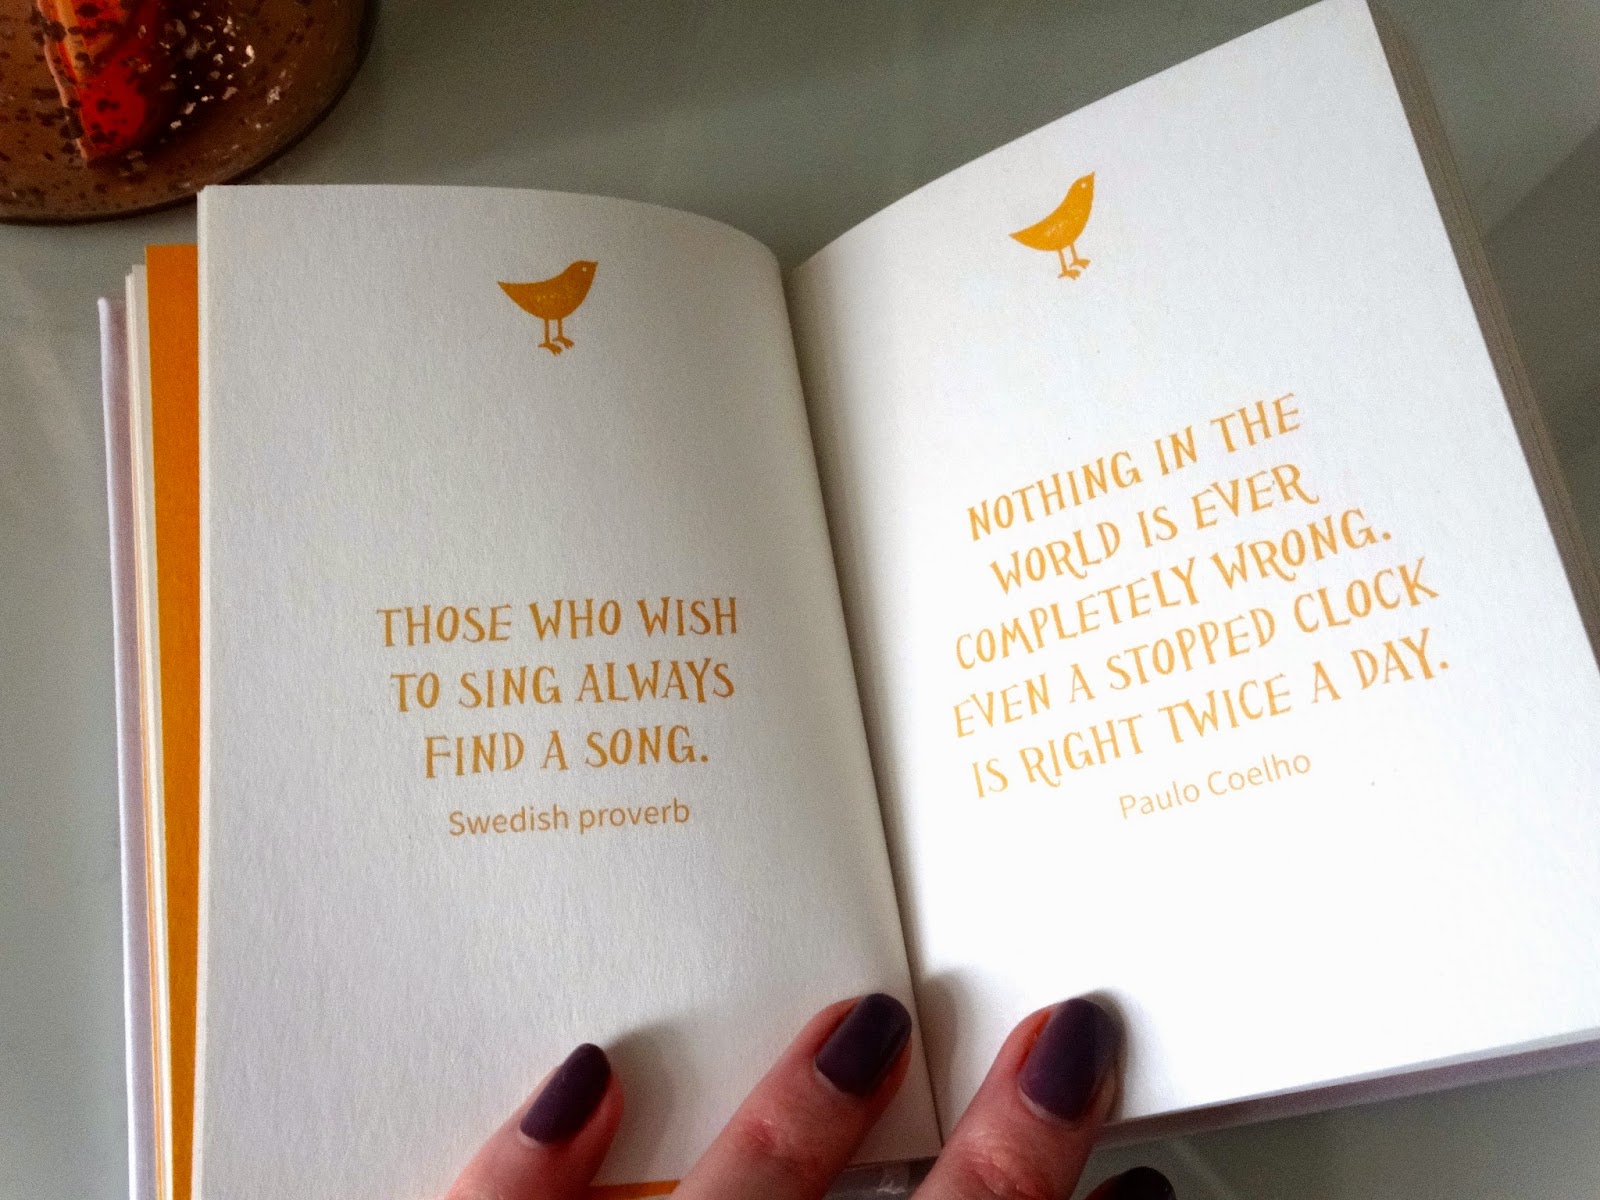 THOSE WHO WISH
TO SING ALWAYS
FIND A SONG.
Swedish proverb
NOTHING IN THE
WORLD IS EVER
COMPLETELY WRONG.
EVEN A STOPPED CLOCK
IS RIGHT TWICE A DAY.
Paulo Coelho